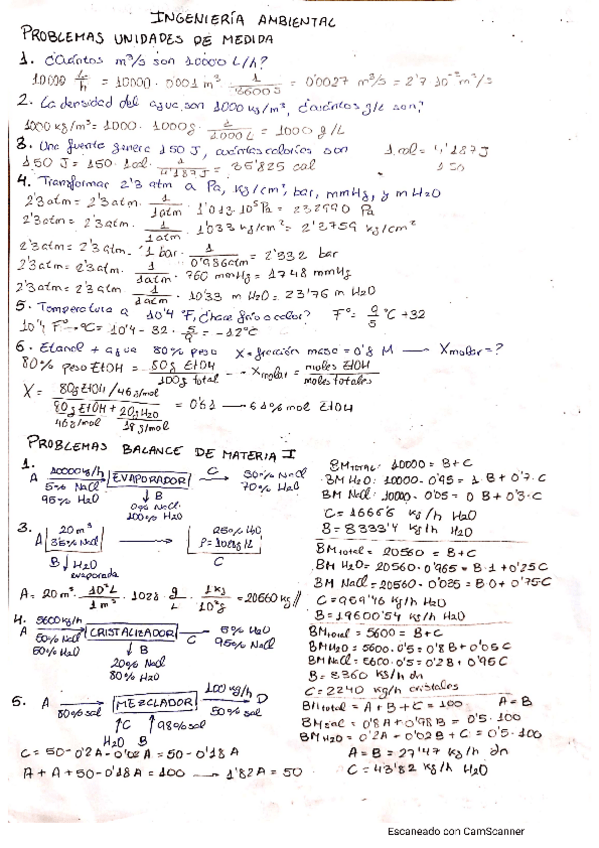 INGENIERÍA AMBIENTAL
PROBLEMAS UNIDADES DE MEDIDA
1. ¿Cuántos m³/s son 10000 L/h?
10000 L/h = 10000 · 0'001 m³ · 1/3600s = 0'0027 m³/s = 2'7 · 10⁻³ m³/s
2. La densidad del agua son 1000 kg/m³, ¿cuántos g/L son?
1000 kg/m³ = 1000 · 1000g · 1/1000L = 1000 g/L
3. Una fuente genera 150 J, cuántas calorías son 1 cal = 4'187J
150 J = 150 · 1cal · 1/4'187J = 35'825 cal
4. Transformar 2'3 atm a Pa, kg/cm², bar, mmHg, y m H2O
2'3 atm = 2'3 atm · 1/1atm · 1'013·10⁵ Pa = 232990 Pa
2'3 atm = 2'3 atm · 1/1atm · 1'033 kg/cm² = 2'3759 kg/cm²
2'3 atm = 2'3 atm · 1 bar · 1/0'986atm = 2'332 bar
2'3 atm = 2'3 atm · 1/1atm · 760 mmHg = 1748 mmHg
2'3 atm = 2'3 atm · 1/1atm · 10'33 m H2O = 23'76 m H2O
5. Temperatura a 10'4 °F, ¿hace frío o calor? F° = 9/5 °C + 32
10'4 F° → °C = 10'4 - 32 · 5/9 = -12°C
6. Etanol + agua 80% peso X = fracción masa = 0'8 M → Xmolar = ?
80% peso EtOH = 80g EtOH/100g total → Xmolar = moles EtOH/moles totales
X = (80g EtOH/46 g/mol)/(80g EtOH/46g/mol + 20g H2O/18g/mol) = 0'61 → 61% mol EtOH
PROBLEMAS BALANCE DE MATERIA I
1. A 10000 kg/h 5% NaCl 95% H2O EVAPORADOR C 30% NaCl 70% H2O
B 0% NaCl 100% H2O
BM TOTAL: 10000 = B + C
BM H2O: 10000 · 0'95 = 1 · B + 0'7 · C
BM NaCl: 10000 · 0'05 = 0 B + 0'3 · C
C = 1666'6 kg/h H2O
B = 8333'4 kg/h H2O
3. A 20 m³ 3'5% NaCl C 25% H2O
B H2O evaporada
A = 20 m³ · 10³L/1m³ · 1028 g/L · 1kg/10³g = 20560 kg
BM total = 20560 = B + C
BM H2O = 20560 · 0'965 = B · 1 + 0'25 C
BM NaCl = 20560 · 0'035 = B · 0 + 0'75C
C = 959'46 kg/h H2O
B = 19600'54 kg/h H2O
4. A 5600kg/h 50% NaCl 50% H2O CRISTALIZADOR C 5% H2O 95% NaCl
B 20% NaCl 80% H2O
BM total = 5600 = B + C
BM H2O = 5600 · 0'5 = 0'8 B + 0'05 C
BM NaCl = 5600 · 0'5 = 0'2B + 0'95C
B = 3360 kg/h dn
C = 2240 kg/h cristales
5. A 80% sal MEZCLADOR 100 kg/h D 50% sal
C H2O B 98% sal
BM total = A + B + C = 100 A = B
BM sal = 0'8 A + 0'98 B = 0'5 · 100
BM H2O = 0'2A + 0'02B + C = 0'5 · 100
C = 50 - 0'2A - 0'02 A = 50 - 0'18 A
A + A + 50 - 0'18 A = 100 → 1'82 A = 50
A = B = 27'47 kg/h dn
C = 43'82 kg/h H2O
Escaneado con CamScanner